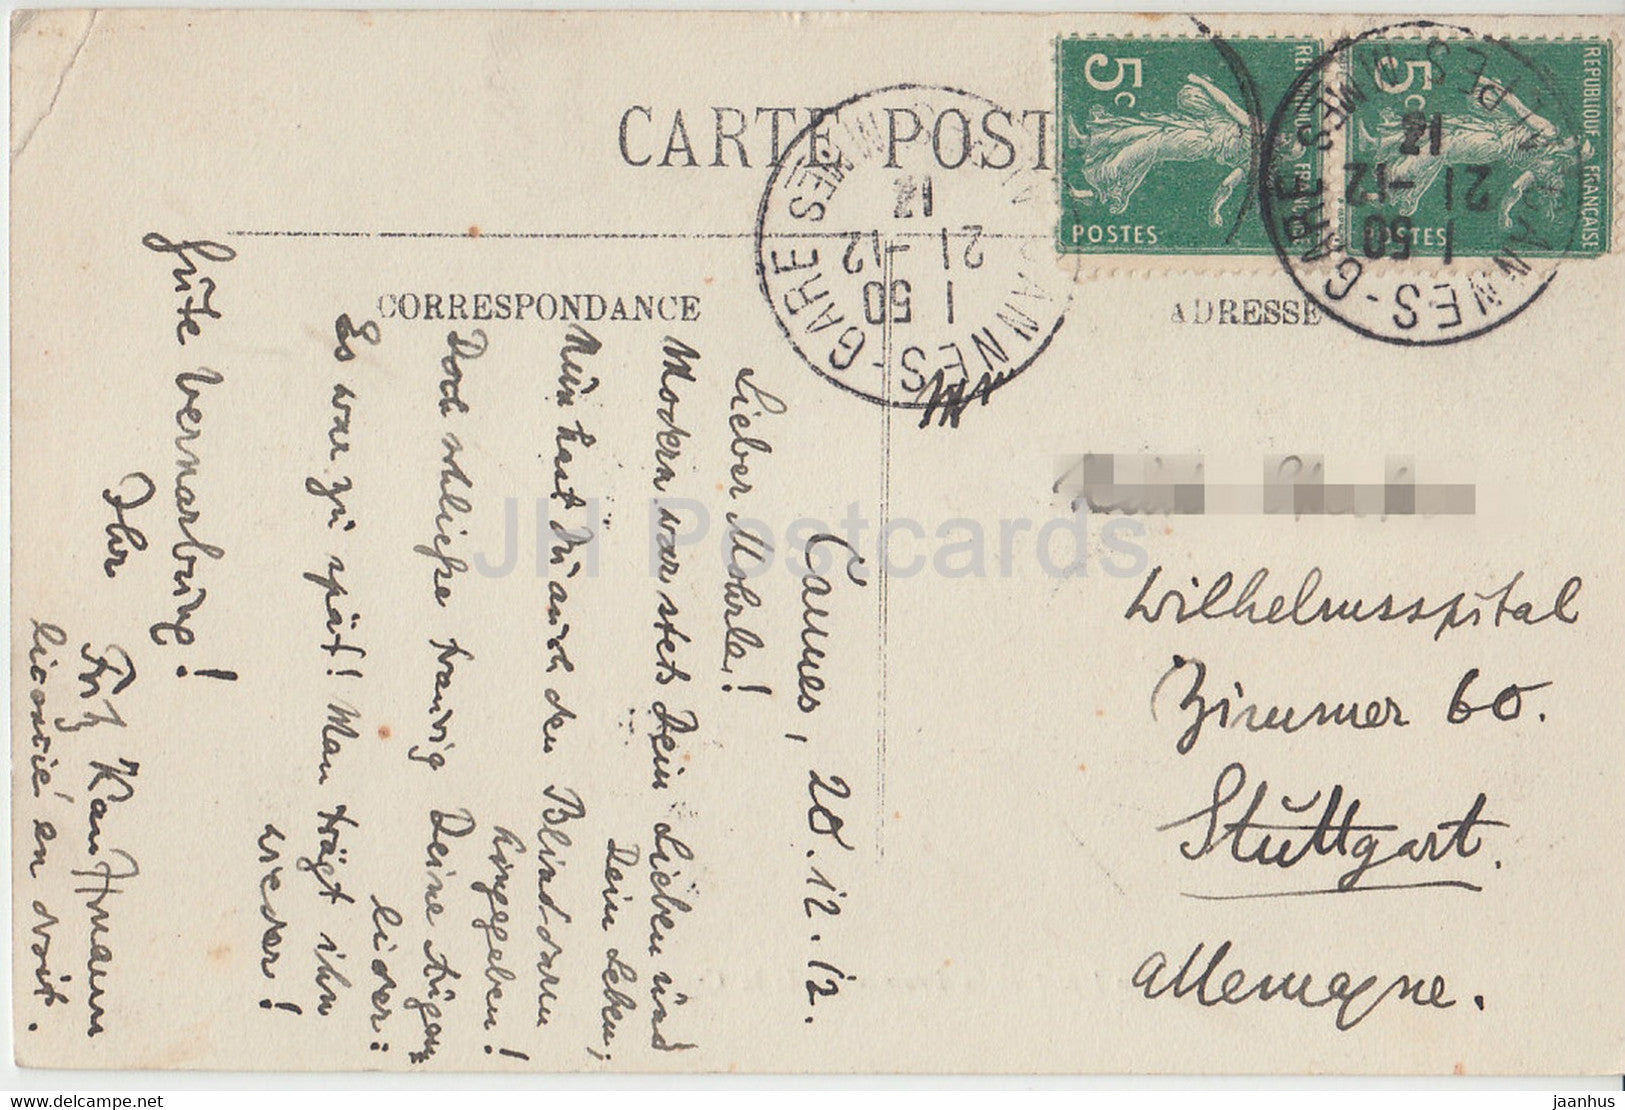 CARTE POST
CORRESPONDANCE
ADRESSE
5c
REPUBLIQUE FRANÇAISE
POSTES
5c
REPUBLIQUE FRANÇAISE
POSTES
CANNES-GARE
ALPES MMES
1 50
21 -12
12
CANNES-GARE
ALPES MMES
1 50
21 -12
12
Cannes, 20.12.12.
Lieber Mohrle!
Modern war stets Dein Lieben und
Dein Leben,
Nun hast Du auch den Blinddarm
hingegeben!
Doch schließe traurig Deine Augen-
lider:
Es war zu spät! Man trägt ihn
wieder!
Gute Vernarbung!
Ihr
Fritz Kauffmann
licencié en droit.
Wilhelmsspital
Zimmer 60.
Stuttgart.
Allemagne.
JH Postcards
www.delcampe.net
jaanhus